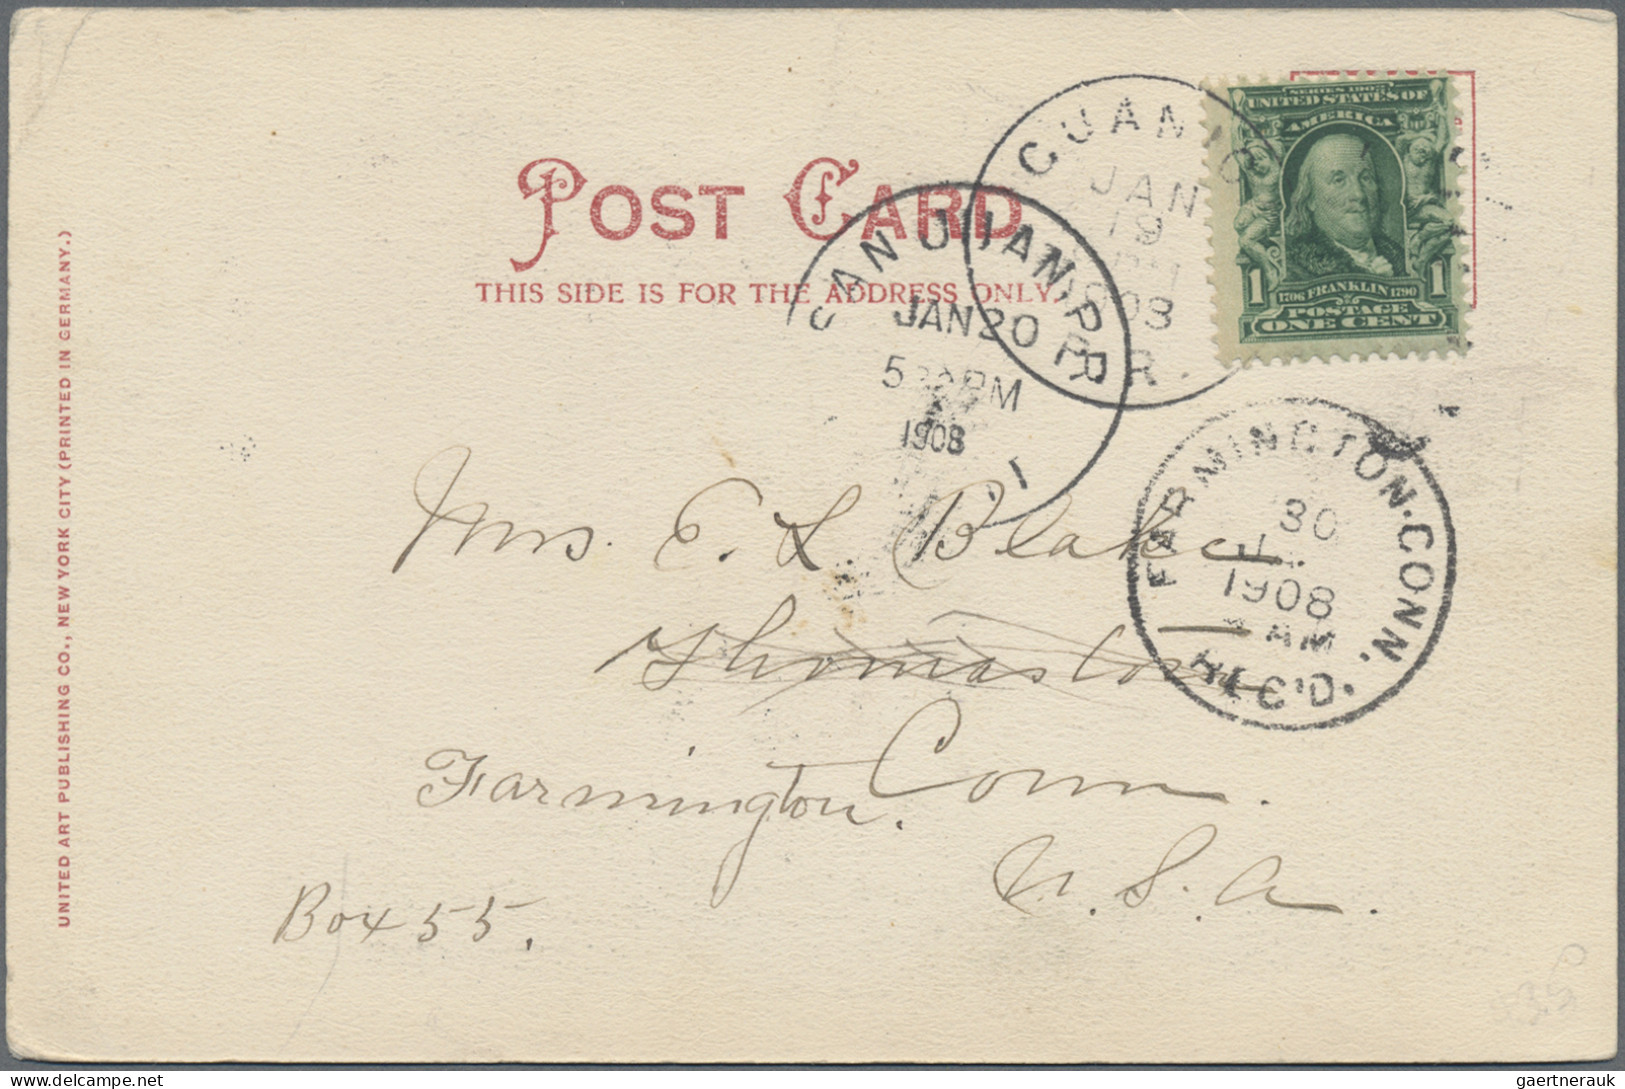 POST CARD
THIS SIDE IS FOR THE ADDRESS ONLY.
UNITED ART PUBLISHING CO., NEW YORK CITY (PRINTED IN GERMANY.)
JAN
19
R.
SAN JUAN, P.R.
JAN 20
5 PM
1908
1
SERIES 1902
UNITED STATES OF
AMERICA
1 1
1706 FRANKLIN 1790
POSTAGE
ONE CENT
FARMINGTON. CONN.
30
1908
AM
REC'D.
Mrs. E. L Blake
Thomaston
Farmington. Conn.
U. S. A.
Box 55.
gaertnerauk